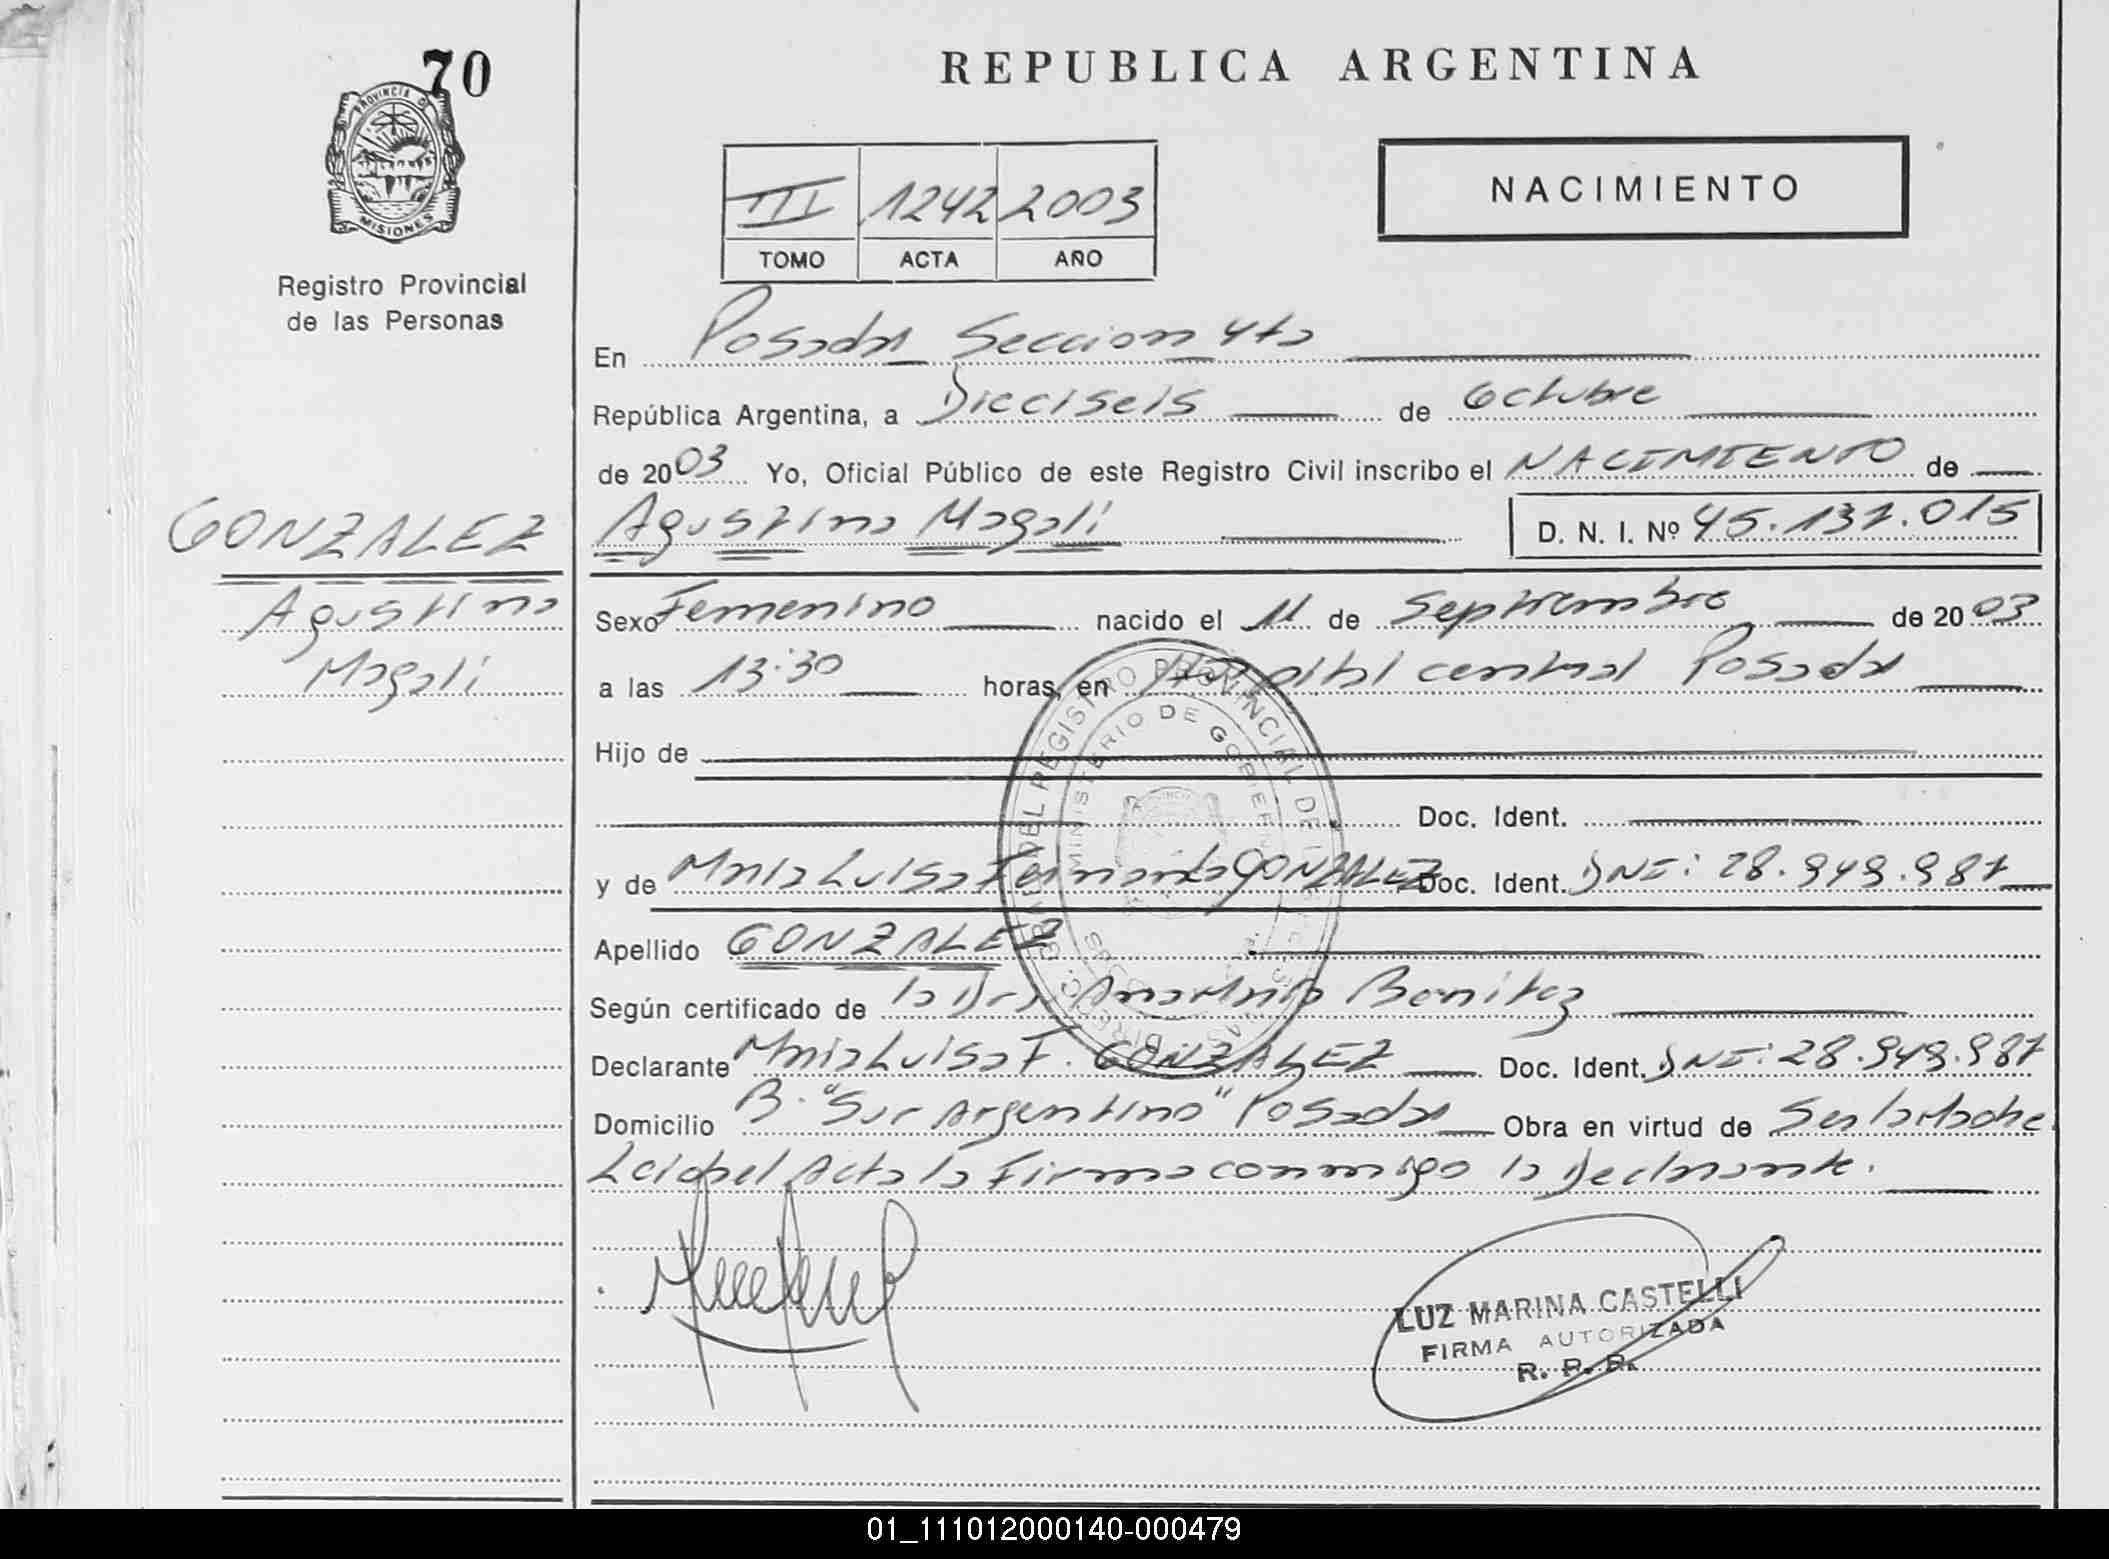 70
PROVINCIA DE
MISIONES
Registro Provincial
de las Personas
REPUBLICA ARGENTINA
NACIMIENTO
III 1242 2003
TOMO ACTA AÑO
En Posadas Seccion 4ta
República Argentina, a Dieciseis de Octubre
de 2003 Yo, Oficial Público de este Registro Civil inscribo el NACIMIENTO de
GONZALEZ
Agustina Magali
Agustina Magali D. N. I. Nº 45.131.015
Sexo Femenino nacido el 11 de Septiembre de 2003
a las 13:30 horas, en Hospital central Posadas
Hijo de
Doc. Ident.
y de Maria Luisa Fernanda GONZALEZ Doc. Ident. DNI: 28.949.981
Apellido GONZALEZ
Según certificado de la Dra. Ana Maria Benitez
Declarante Maria Luisa F. GONZALEZ Doc. Ident. DNI: 28.949.981
Domicilio B. "Sur Argentino" Posadas Obra en virtud de Ser la Madre
Leida el Acta la Firma conmigo la Declarante.
DEL REGISTRO PROVINCIAL DE
MINISTERIO DE GOBIERNO
LUZ MARINA CASTELLI
FIRMA AUTORIZADA
R. P. P.
01_111012000140-000479